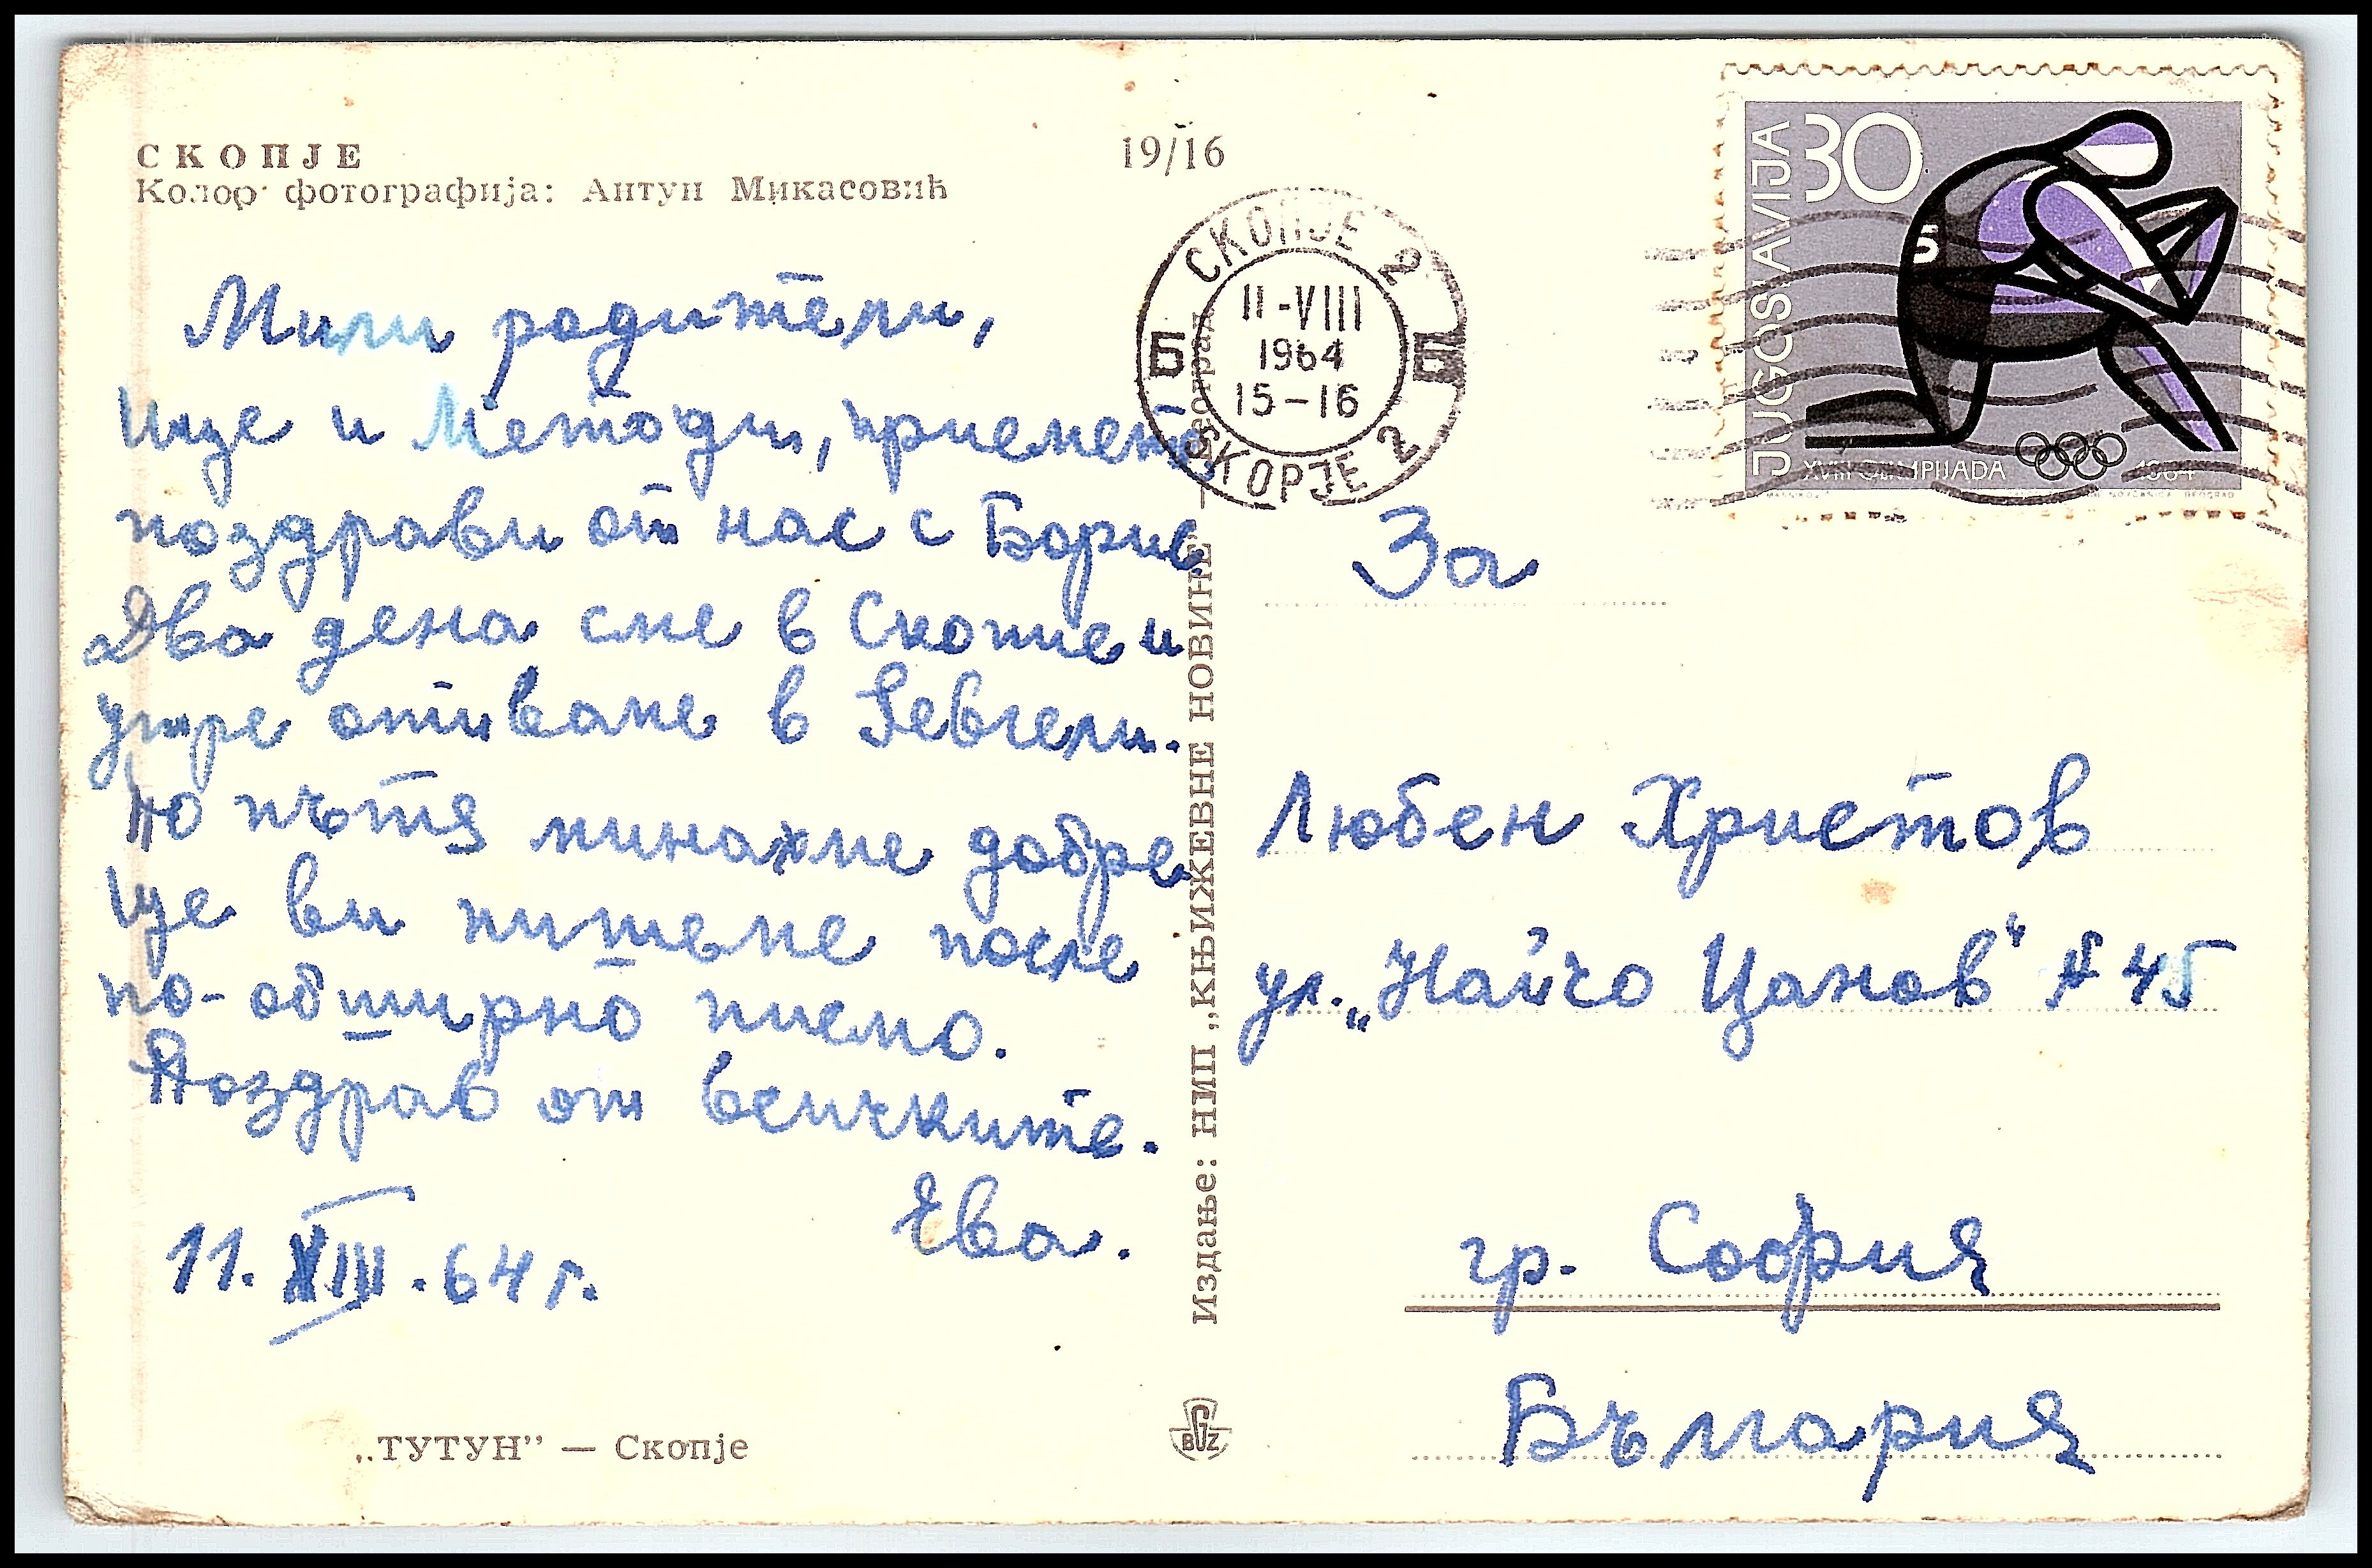 СКОПЈЕ
Колор фотографија: Антун Микасовић
19/16
Мили родители,
Ице и Методи, приемете
поздрави от нас с Борис
Два дена сме в Скопие и
утре отиваме в Гевгели.
По пътя минахме добре
Ще ви пишеме после
по-обширно писмо.
Поздрав от всичките.
Ева.
11.VIII.64 г.
„ТУТУН” — Скопје
Издање: НИП „КЊИЖЕВНЕ НОВИНЕ” — Београд
BGZ
СКОПЈЕ 2
11-VIII
1964
15-16
Б Б
СКОРЈЕ 2
JUGOSLAVIJA
30
XVIII OLIMPIJADA 1964
За
Любен Христов
ул. „Найчо Цанов“ № 45
гр. София
България